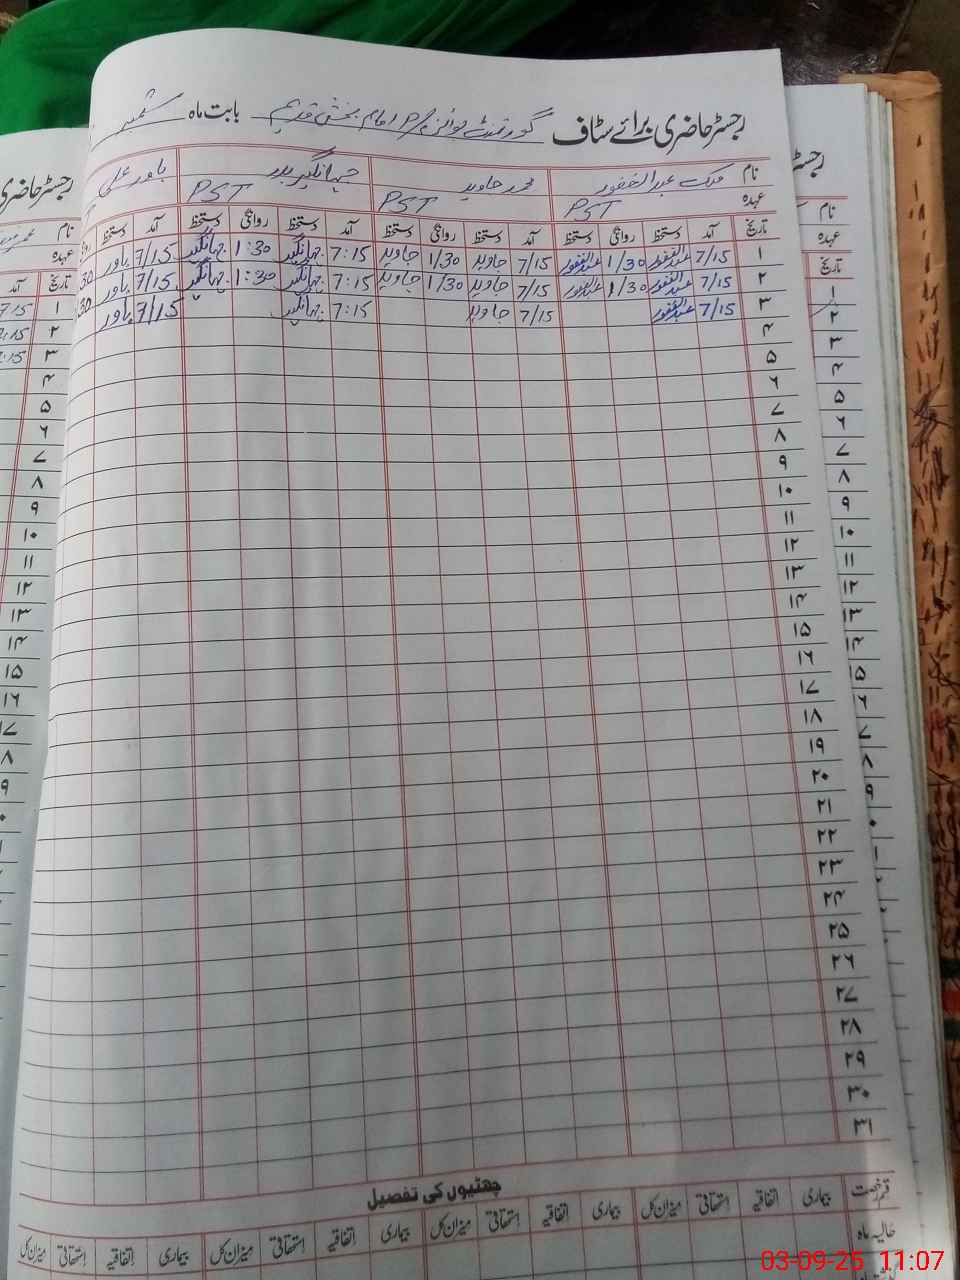 رجسٹر حاضری برائے سٹاف گورنمنٹ بوائز P/S امام بخش قدیم بابت ماہ ستمبر
نام ملک عبدالغفور محمد جاوید جہانگیر بدر یاور علی
عہدہ PST PST PST
تاریخ آمد دستخط روانگی دستخط آمد دستخط روانگی دستخط آمد دستخط روانگی دستخط آمد دستخط
۱ 7/15 عبدالغفور 1/30 عبدالغفور 7/15 جاوید 1/30 جاوید 7:15 جہانگیر 1:30 جہانگیر 7/15 یاور
۲ 7/15 عبدالغفور 1/30 عبدالغفور 7/15 جاوید 1/30 جاوید 7:15 جہانگیر 1:30 جہانگیر 7/15 یاور
۳ 7/15 عبدالغفور 7/15 جاوید 7:15 جہانگیر 7/15 یاور
۴
۵
۶
۷
۸
۹
۱۰
۱۱
۱۲
۱۳
۱۴
۱۵
۱۶
۱۷
۱۸
۱۹
۲۰
۲۱
۲۲
۲۳
۲۴
۲۵
۲۶
۲۷
۲۸
۲۹
۳۰
۳۱
چھٹیوں کی تفصیل
قسم رخصت بیماری اتفاقیہ استحقاقی میزان کل بیماری اتفاقیہ استحقاقی میزان کل بیماری اتفاقیہ استحقاقی میزان کل بیماری اتفاقیہ استحقاقی میزان کل
حالیہ ماہ
03-09-25 11:07